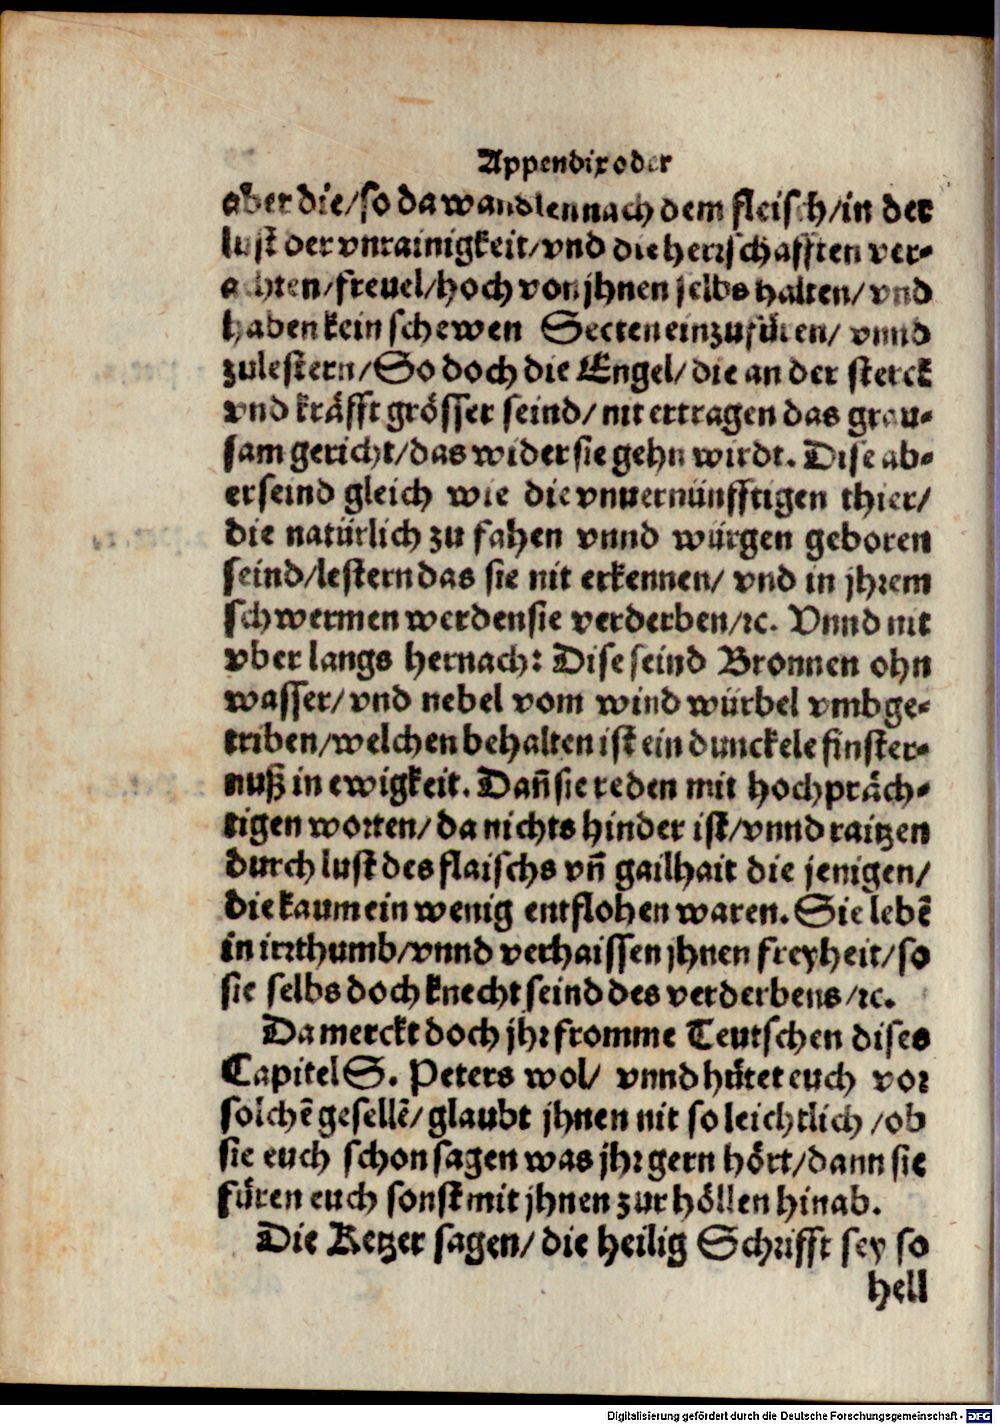 Appendix oder
aber die/so da wandlen nach dem fleisch/in der
lust der vnrainigkeit/vnd die herrschafften ver-
achten/freuel/hoch von jhnen selbs halten/ vnd
haben kein schewen Secten einzufüren/ vnnd
zulestern/So doch die Engel/die an der sterck
vnd kräfft grösser seind/nit ertragen das grau-
sam gericht/das wider sie gehn wirdt. Dise ab-
er seind gleich wie die vnuernünfftigen thier/
die natürlich zu fahen vnnd würgen geboren
seind/lestern das sie nit erkennen/ vnd in jhrem
schwermen werden sie verderben/ꝛc. Vnnd nit
vber langs hernach: Dise seind Bronnen ohn
wasser/ vnd nebel vom wind würbel vmbge-
triben/welchen behalten ist ein dunckele finster-
nuß in ewigkeit. Dañ sie reden mit hochpräch-
tigen worten/ da nichts hinder ist/vnnd raitzen
durch lust des flaischs vñ gailhait die jenigen/
die kaum ein wenig entflohen waren. Sie lebẽ
in irrthumb/vnnd verhaissen jhnen freyheit/so
sie selbs doch knecht seind des verderbens/ꝛc.
Da merckt doch jhr fromme Teutschen dises
Capitel S. Peters wol/ vnnd hütet euch vor
solchẽ gesellẽ/glaubt jhnen nit so leichtlich/ob
sie euch schon sagen was jhr gern hört/dann sie
füren euch sonst mit jhnen zur höllen hinab.
Die Ketzer sagen/ die heilig Schrifft sey so
hell
Digitalisierung gefördert durch die Deutsche Forschungsgemeinschaft - DFG